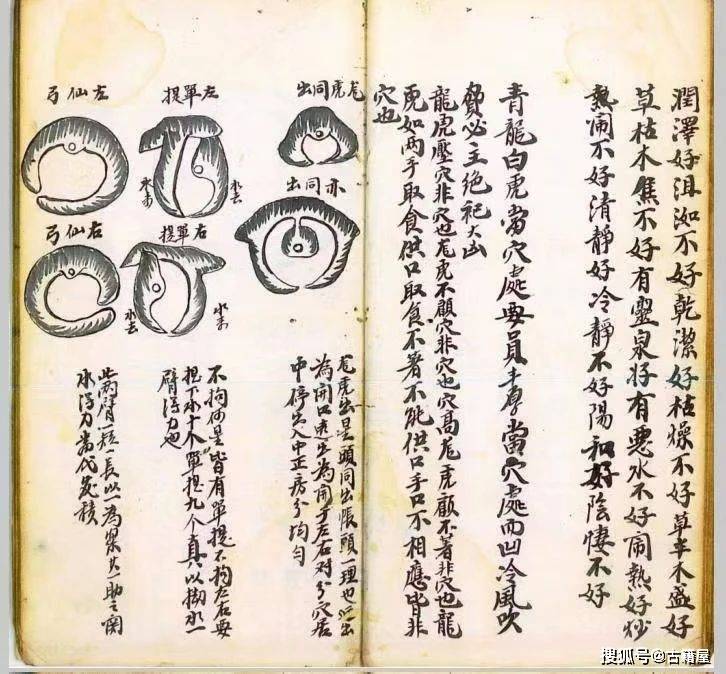 潤澤好沮洳不好乾潔好枯燥不好草木盛好
草枯木焦不好有靈泉好有惡水不好鬧熱好炒
熱鬧不好清靜好冷靜不好陽和好陰悽不好
青龍白虎當穴處要員當穴處而凹冷風吹
必主絕祀大凶
龍虎壓穴非穴也龙虎不顧穴非穴也穴高龙虎顧不著非穴也龍
虎如兩手取食供口取食不著不能供口手口不相應皆非
穴也
龙虎同出
亦同出
左單提
水去
水来
右單提
水来
水去
左仙弓
右仙弓
龙虎出星頭同出頭一理也出
為開口出為開手左右对分穴居
中停出入中正房分均勻
不拘何星皆有單提不拘左右要
提下水十个單提九个真以拗水一
臂得力也
此兩臂一短一長以一為案其一助之関
水得力當代發積
搜狐号@古籍屋